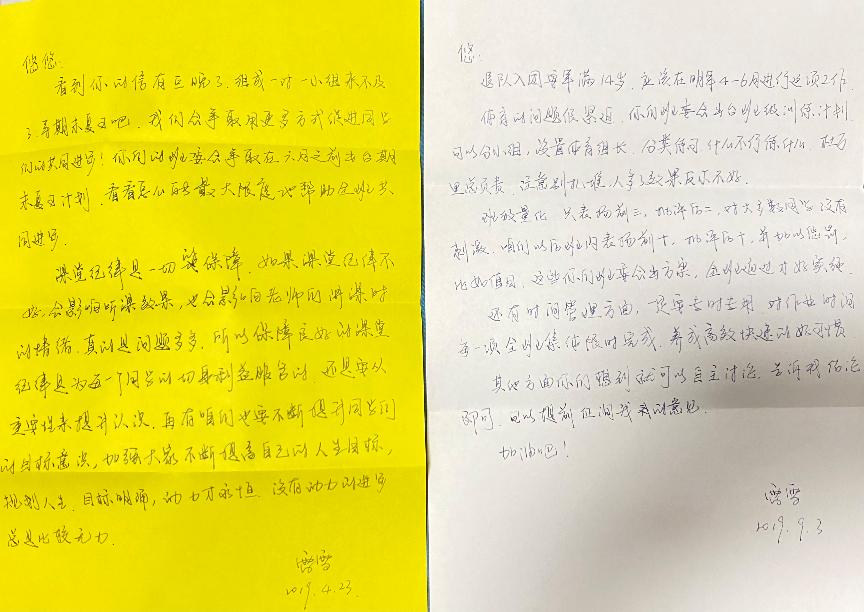 悠悠:
看到你的信有点晚了,组成一对一小组来不及
了,等期末复习吧,我们会争取用更多方式促进同学
们的共同进步!你们的班委会争取在六月之前出台期
末复习计划,看看怎么的最大限度地帮助全班共
同进步。
课堂纪律是一切的保障,如果课堂纪律不
好,会影响听课效果,也会影响老师们讲课时
的情绪,真的是问题多多,所以保障良好的课堂
纪律是为每一个同学的切身利益服务的,还是要从
重要性来提升认识,再有咱们也要不断提升同学们
的目标意识,加强大家不断提高自己的人生目标,
规划人生,目标明确,动力才永恒,没有动力的进步
总是比较无力.
雪雪
2019.4.23.
悠:
退队入团要年满14岁,应该在明年4-6月进行这项工作.
体育的问题你累追,你们班委会出台班级训练计划
可以分小组,设置体育组长,分类练习,什么不行练什么,
里总负责,注意别扎堆,人多了效果反尔不好.
班级量化,只表扬前三,批评后二,对大多数同学没有
刺激,咱们以后班内表扬前十,批评后十,并加以惩罚,
比如值日,这些你们班委会出方案,全班通过才好实施.
还有时间管理方面,一定要去时去划,对作业时间
每一项全班集体限时完成,养成高效快速的好习惯
其他方面你们想到就可以自主讨论,告诉我结论
即可,可以提前征询我的意见.
加油吧!
雪雪
2019.9.3